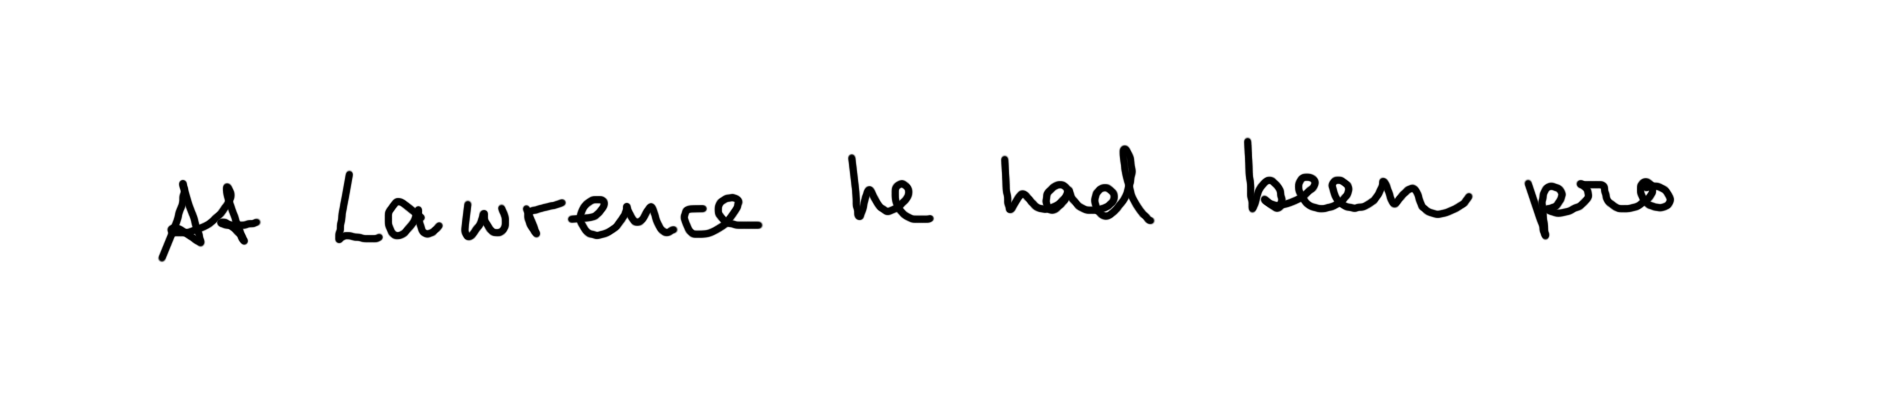 At Lawrence he had been pro